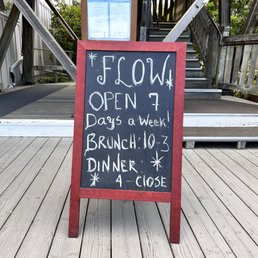 FLOW
OPEN 7
Days a Week!
BRUNCH: 10-3
DINNER:
4 - CLOSE